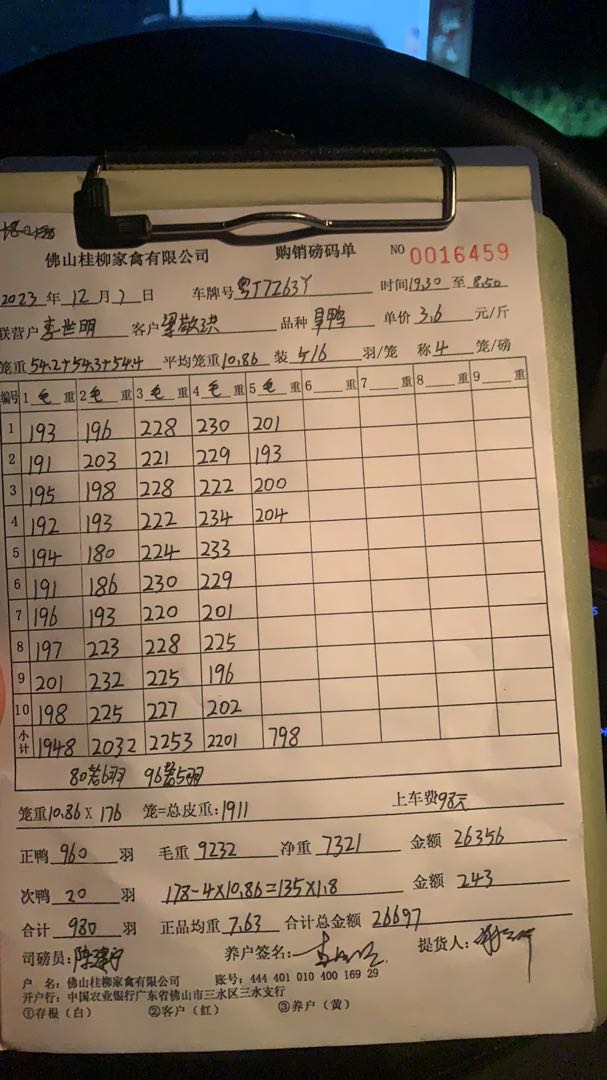 佛山桂柳家禽有限公司 购销磅码单 NO 0016459
2023年12月7日 车牌号粤T7263Y 时间19.30至8.50
联营户李世明 客户梁敬洪 品种旱鸭 单价3.6元/斤
笼重54.2+54.3+54.4 平均笼重10.86 装5/6羽/笼 称4笼/磅
编号 1毛重 2毛重 3毛重 4毛重 5毛重 6重 7重 8重 9重
1 193 196 228 230 201
2 191 203 221 229 193
3 195 198 228 222 200
4 192 193 222 234 204
5 194 180 224 233
6 191 186 230 229
7 196 193 220 201
8 197 223 228 225
9 201 232 225 196
10 198 225 227 202
小计 1948 2032 2253 2201 798
80笼6羽 96笼5羽
笼重10.86X176笼=总皮重:1911 上车费98元
正鸭960羽 毛重9232 净重7321 金额26356
次鸭20羽 178-4X10.86=135X1.8 金额243
合计980羽 正品均重7.63 合计总金额26697
司磅员: 养户签名: 提货人:
户 名:佛山桂柳家禽有限公司 账号:444 401 010 400 169 29
开户行:中国农业银行广东省佛山市三水区三水支行
①存根(白) ②客户(红) ③养户(黄)